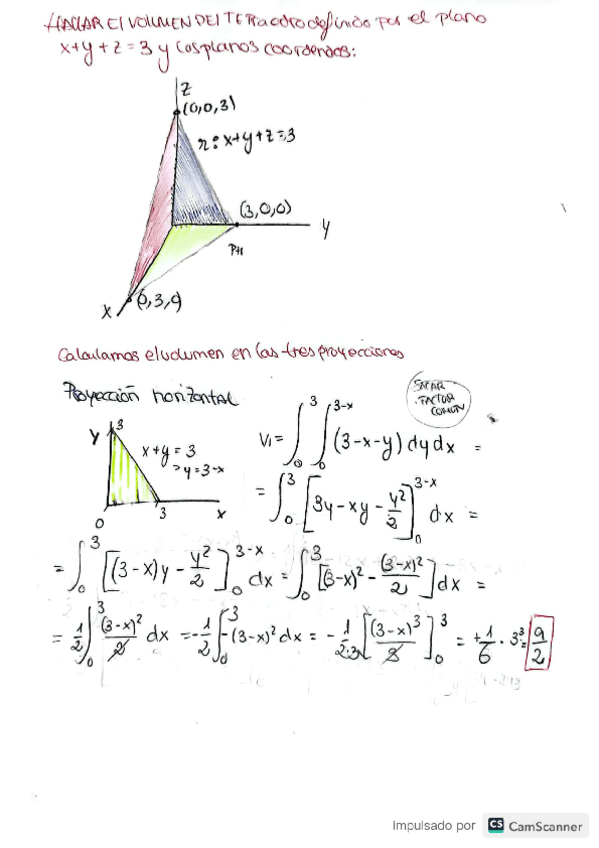 HALLAR El VOLUMEN DEl TETRAedro definido por el plano
x+y+z=3 y los planos coordenados:
Z
(0,0,3)
π: x+y+z=3
(3,0,0)
Y
PH
(0,3,0)
X
Calculamos el volumen en las tres proyecciones
Proyección horizontal
SACAR FACTOR COMÚN
Y 3
x+y=3
→y=3-x
0 3 x
V₁= ∫₀³ ∫₀³⁻ˣ (3-x-y) dy dx =
= ∫₀³ [3y-xy-y²/2]₀³⁻ˣ dx =
= ∫₀³ [(3-x)y - y²/2]₀³⁻ˣ dx = ∫₀³ [(3-x)² - (3-x)²/2] dx =
= 1/2 ∫₀³ (3-x)²/2 dx = -1/2 ∫₀³ -(3-x)² dx = - 1/2·3 [(3-x)³/3]₀³ = +1/6 · 3³ = 9/2
Impulsado por CS CamScanner